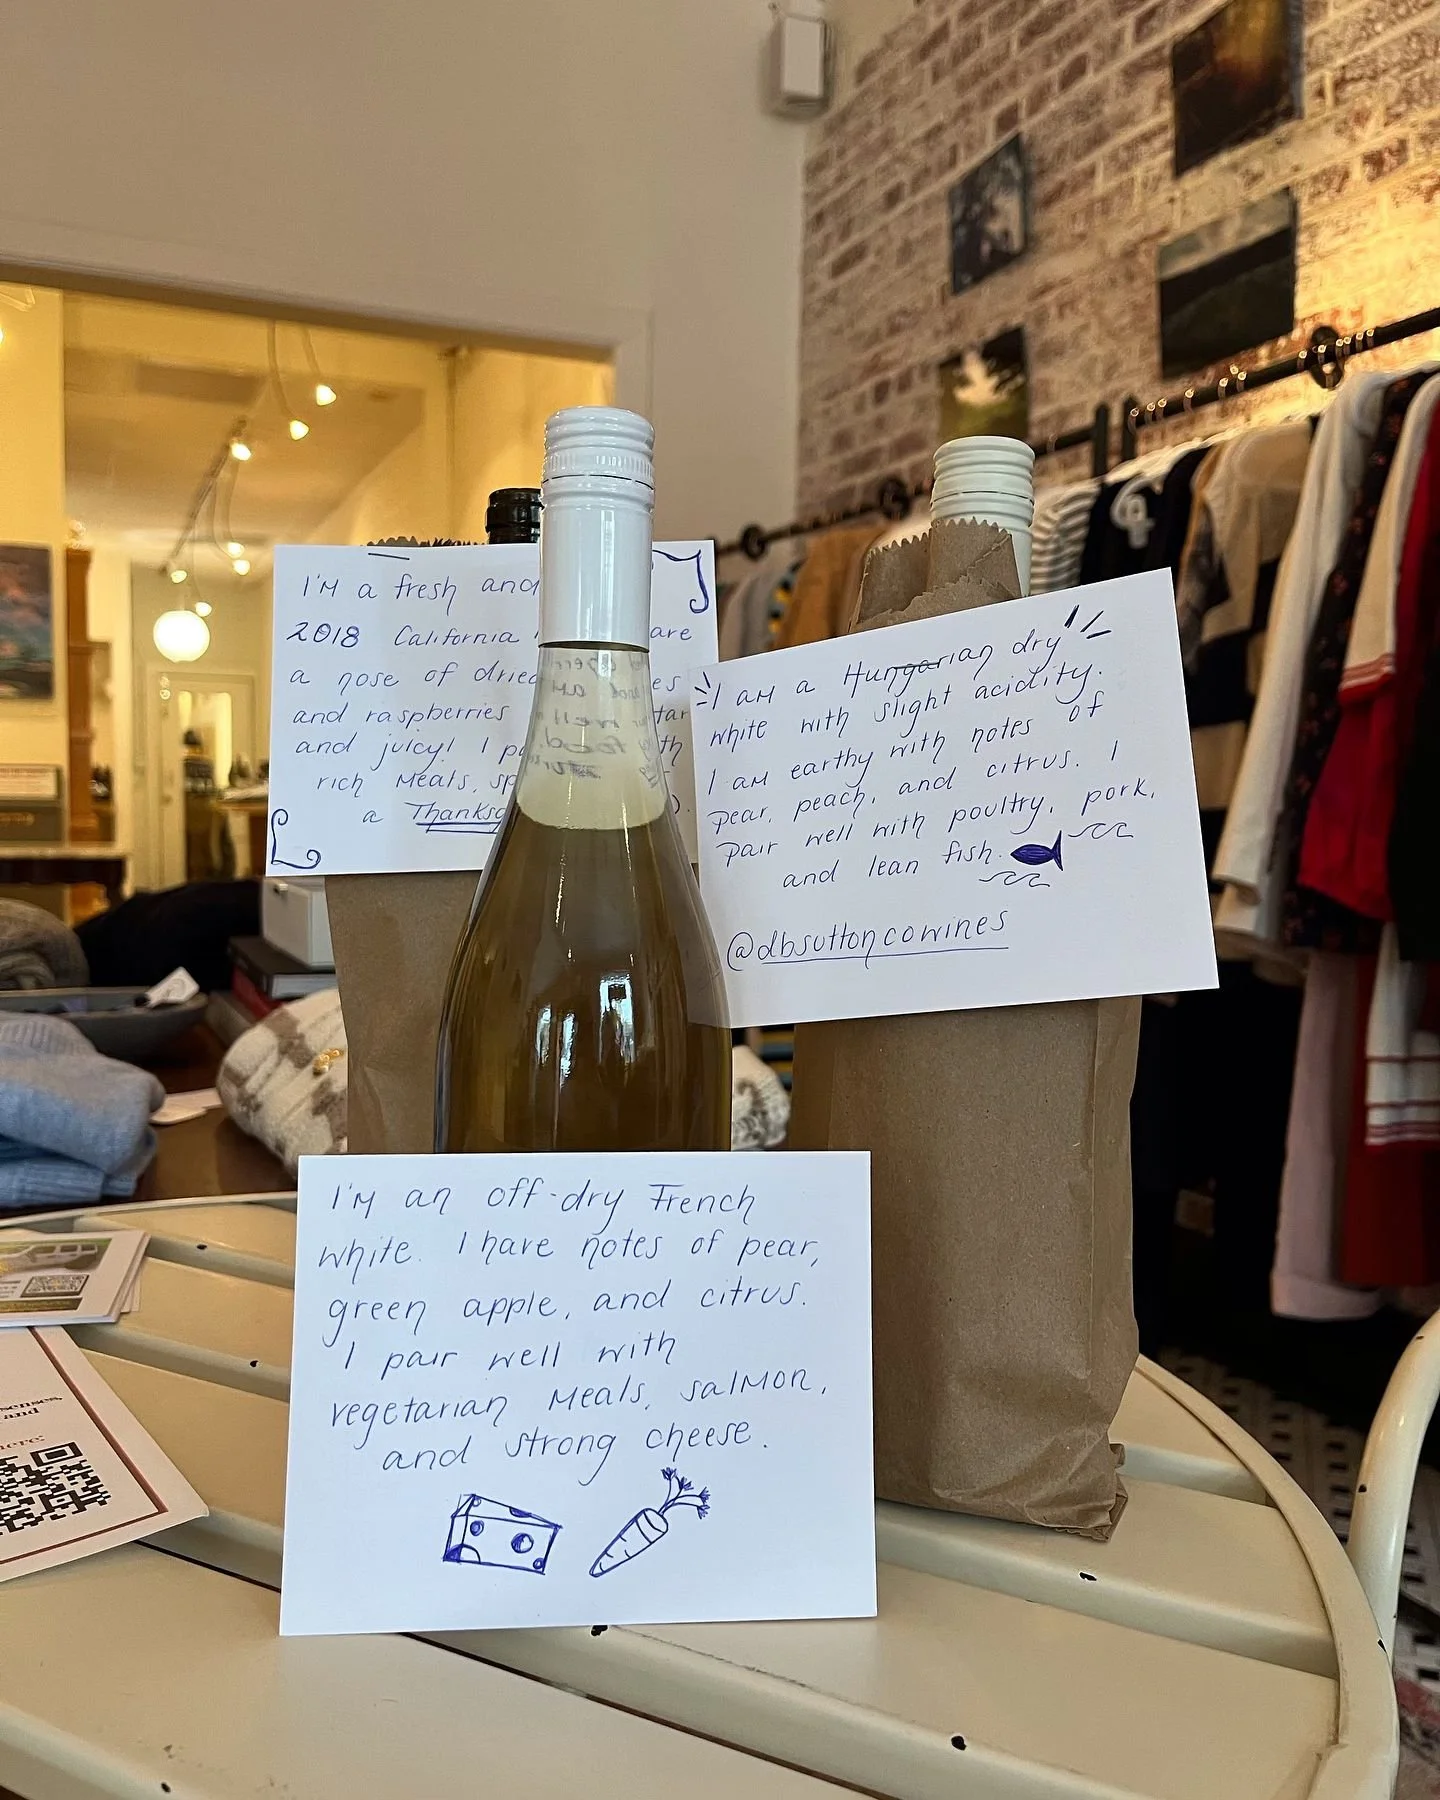 I'm a fresh and
2018 California are
a nose of dried es
and raspberries tar
and juicy! I th
rich meals, sp
a Thanksg
I am a Hungarian dry
white with slight acidity.
I am earthy with notes of
pear, peach, and citrus. I
pair well with poultry, pork,
and lean fish.
@dbsuttoncowines
I'm an off-dry French
white. I have notes of pear,
green apple, and citrus.
I pair well with
vegetarian meals, salmon,
and strong cheese.